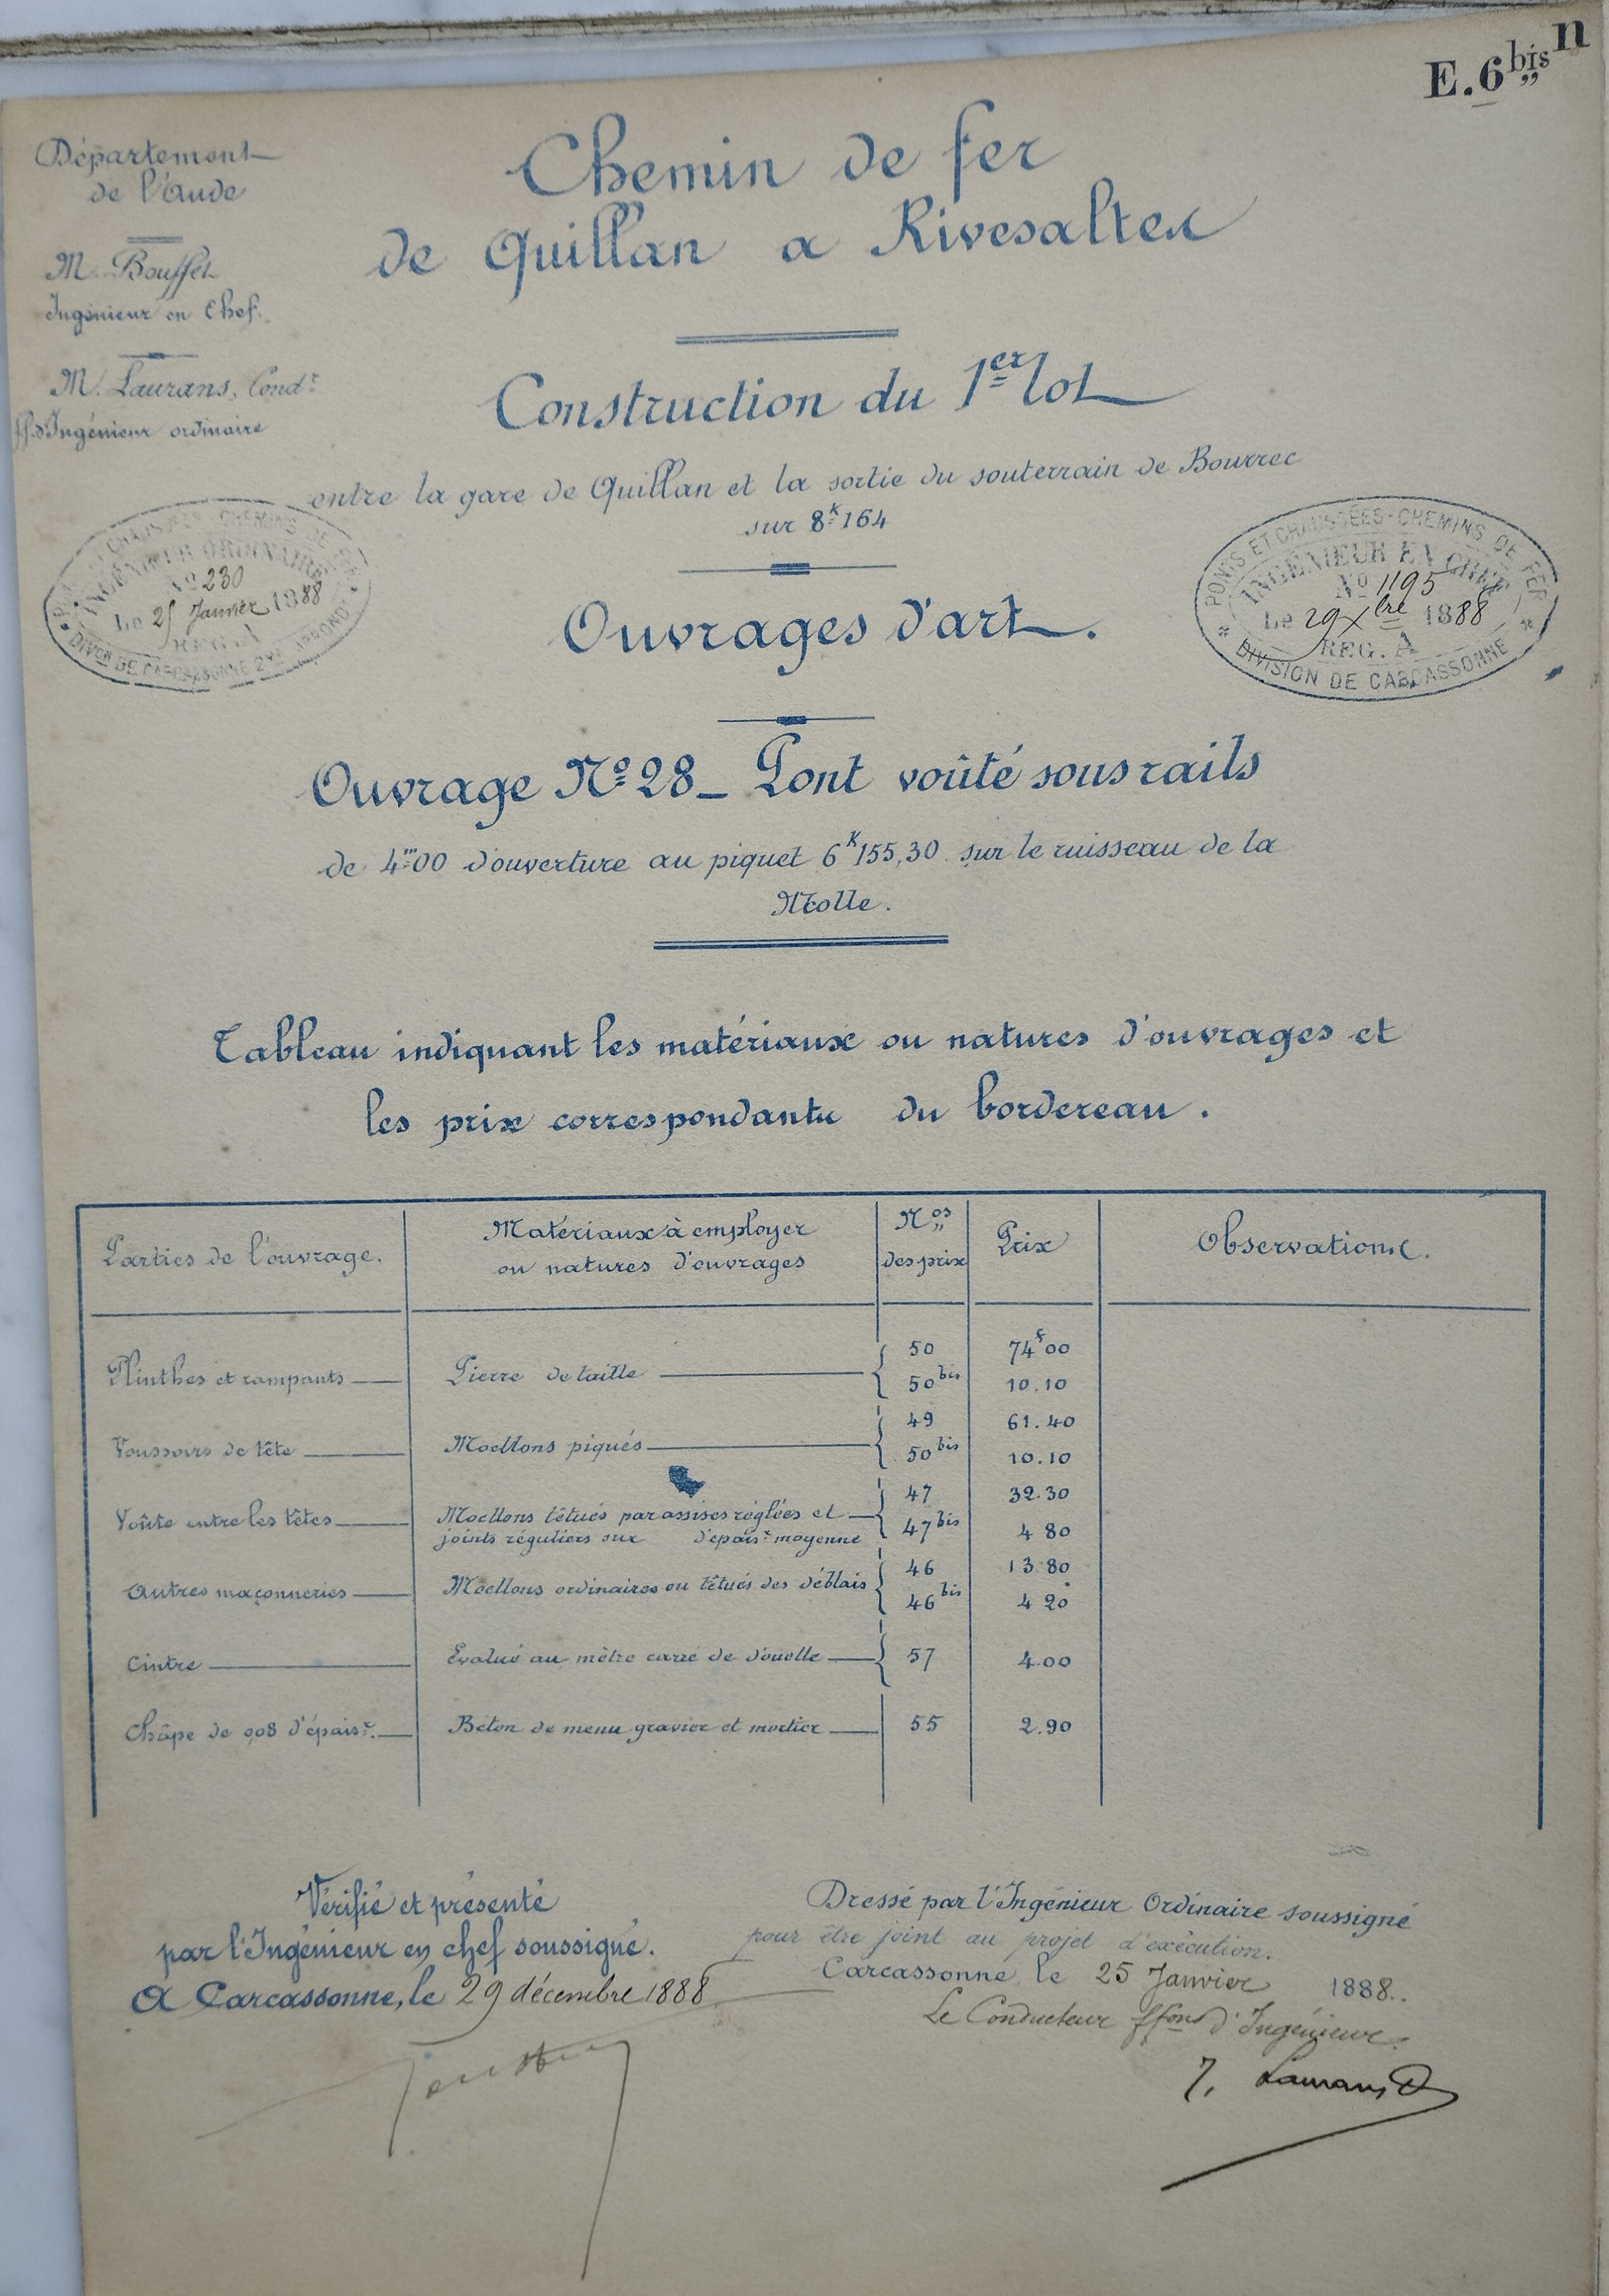 E.6 bis n
Département
de l'Aude
M. Bouffet
Ingénieur en Chef.
M. Laurans, Condr
ff. d'Ingénieur ordinaire
Chemin de fer
de Quillan a Rivesaltes
Construction du 1er lot
entre la gare de Quillan et la sortie du souterrain de Bourrec
sur 8k164
CHAUSSÉES-CHEMINS DE FER
INGÉNIEUR ORDINAIRE
No 230
Le 25 Janvier 1888
REG. A
DIVon DE CARCASSONNE 2me ARROND
PONTS ET CHAUSSÉES-CHEMINS DE FER
INGÉNIEUR EN CHEF
No 1195
Le 29 Xbre 1888
REG. A
DIVISION DE CARCASSONNE
Ouvrages d'art.
Ouvrage No 28 _ Pont voûté sous rails
de 4m00 d'ouverture au piquet 6k155,30 sur le ruisseau de la
Molle.
Tableau indiquant les matériaux ou natures d'ouvrages et
les prix correspondants du bordereau.
Parties de l'ouvrage. Matériaux à employer ou natures d'ouvrages Nos des prix Prix Observations.
Plinthes et rampants Pierre de taille 50 74f00
50bis 10.10
Voussoirs de tête Moellons piqués 49 61.40
50bis 10.10
Voûte entre les têtes Moellons têtués par assises réglées et 47 32.30
joints réguliers sur d'épaisr moyenne 47bis 4 80
Autres maçonneries Moellons ordinaires ou têtués des déblais 46 13.80
46bis 4 20
Cintre Evalué au mètre carré de douelle 57 4.00
Châpe de 0,08 d'épaisr. Béton de menu gravier et mortier 55 2.90
Vérifié et présenté
par l'Ingénieur en chef soussigné.
A Carcassonne, le 29 décembre 1888
Dressé par l'Ingénieur Ordinaire soussigné
pour être joint au projet d'exécution.
Carcassonne, le 25 Janvier 1888.
Le Conducteur ffons d'Ingénieur.
J. Laurans